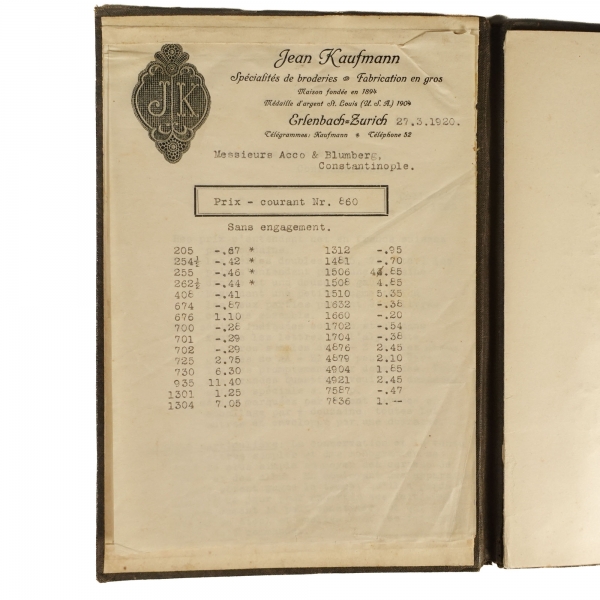 JK
Jean Kaufmann
Spécialités de broderies Fabrication en gros
Maison fondée en 1894
Médaille d'argent St. Louis (U.S.A.) 1904
Erlenbach-Zurich 27.3.1920.
Télégrammes: Kaufmann * Téléphone 52
Messieurs Acco & Blumberg,
Constantinople.
Prix - courant Nr. 860
Sans engagement.
205 -.67 * 1312 -.95
254½ -.42 * 1481 -.70
255 -.46 * 1506 4.85
262½ -.44 * 1508 4.85
408 -.41 1510 5.35
674 -.87 1632 -.38
676 1.10 1660 -.20
700 -.28 1702 -.54
701 -.29 1704 -.38
702 -.29 4876 2.45
725 2.75 4879 2.10
730 6.30 4904 1.85
935 11.40 4921 2.45
1301 1.25 7587 -.47
1304 7.05 7836 1.--